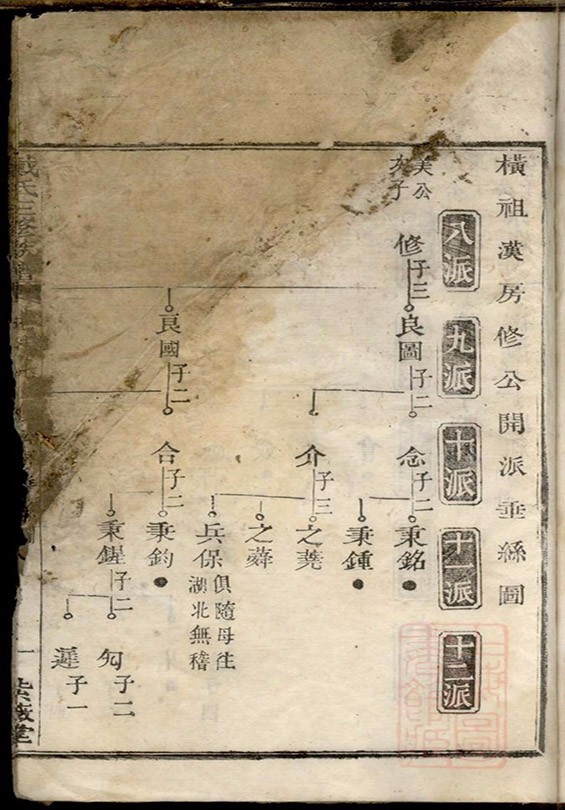 橫祖漢房修公開派垂絲圖
八派
九派
十派
十一派
十二派
美公
次子
修
子三
良圖
子二
念
子二
秉銘
秉鍾
介
子三
之蕘
之蕣
兵保
俱隨母往
湖北無稽
良國
子二
合
子二
秉鈞
秉鍟
子二
勾
子二
遲
子一
戴氏三修族譜
一
紫薇堂